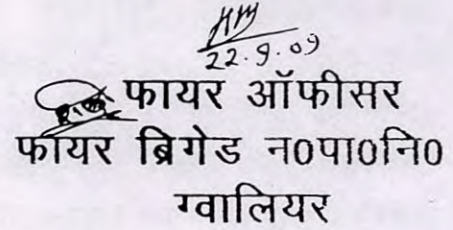 22.9.09
फायर ऑफीसर
फायर ब्रिगेड न0पा0नि0
ग्वालियर